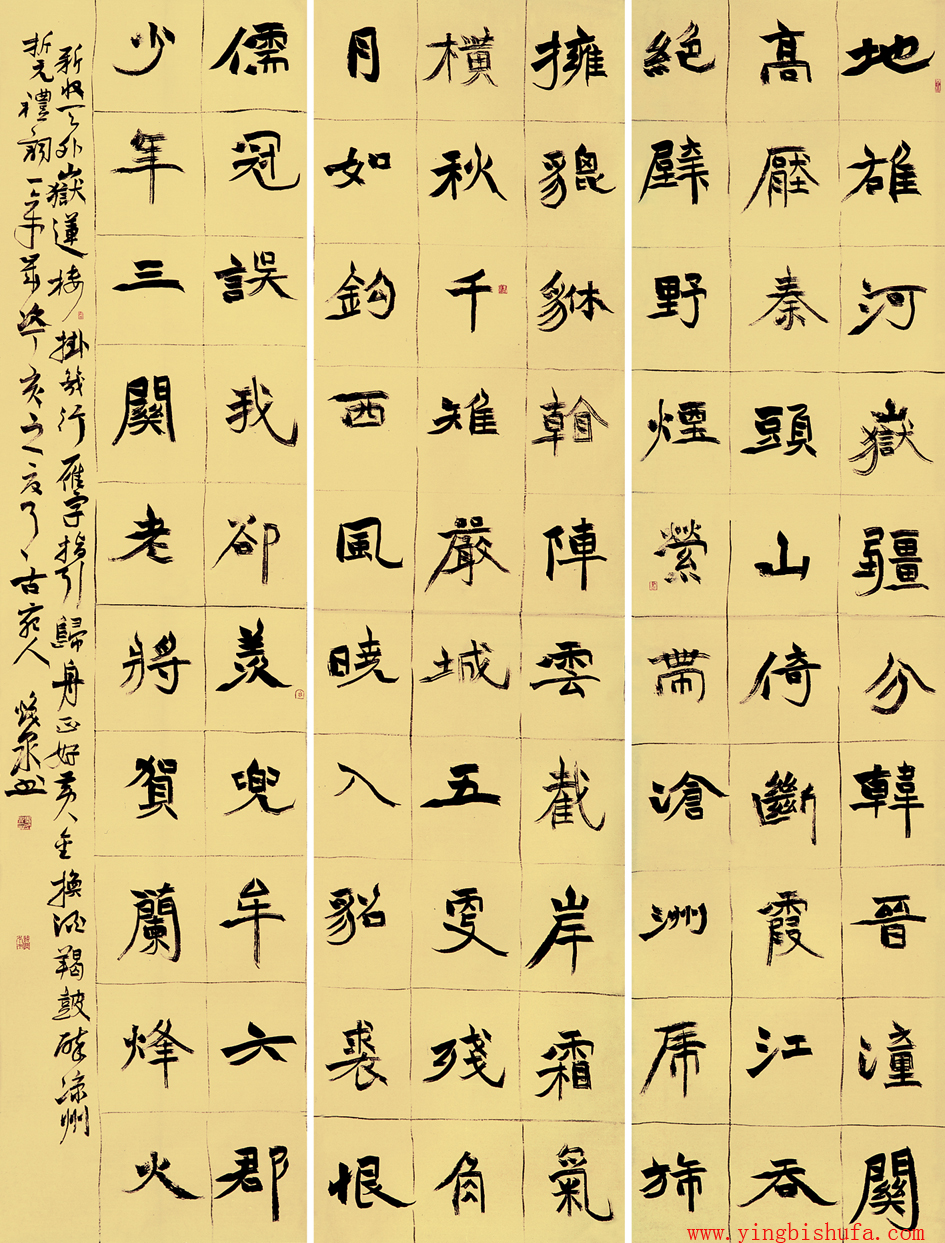 地雄河嶽疆分韓晉潼關
高壓秦頭山倚斷霞江吞
絕壁野煙縈帶滄洲虎旆
擁貔貅看陣雲截岸霜氣
橫秋千雉嚴城五更殘角
月如鉤西風曉入貂裘恨
儒冠誤我卻羨兜牟六郡
少年三關老將賀蘭烽火
新收天外嶽蓮樓掛幾行雁字指引歸舟正好黃金換酒羯鼓醉涼州
折元禮詞一首歲次丁亥之夏月古宛人
www.yingbishufa.com